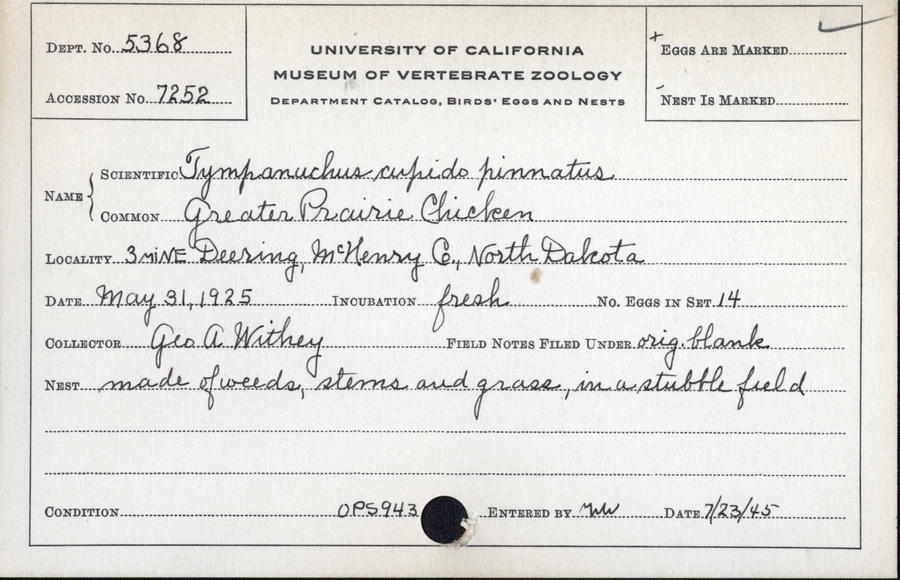 DEPT. No. 5368
ACCESSION No. 7252
UNIVERSITY OF CALIFORNIA
MUSEUM OF VERTEBRATE ZOOLOGY
DEPARTMENT CATALOG, BIRDS' EGGS AND NESTS
+ EGGS ARE MARKED
- NEST IS MARKED
NAME { SCIENTIFIC Tympanuchus cupido pinnatus
COMMON Greater Prairie Chicken
LOCALITY 3 mi NE Deering, McHenry Co., North Dakota
DATE May 31, 1925 INCUBATION fresh No. EGGS IN SET 14
COLLECTOR Geo A Withey FIELD NOTES FILED UNDER orig. blank
NEST made of weeds, stems and grass, in a stubble field
CONDITION OPS943 ENTERED BY DATE 7/23/45